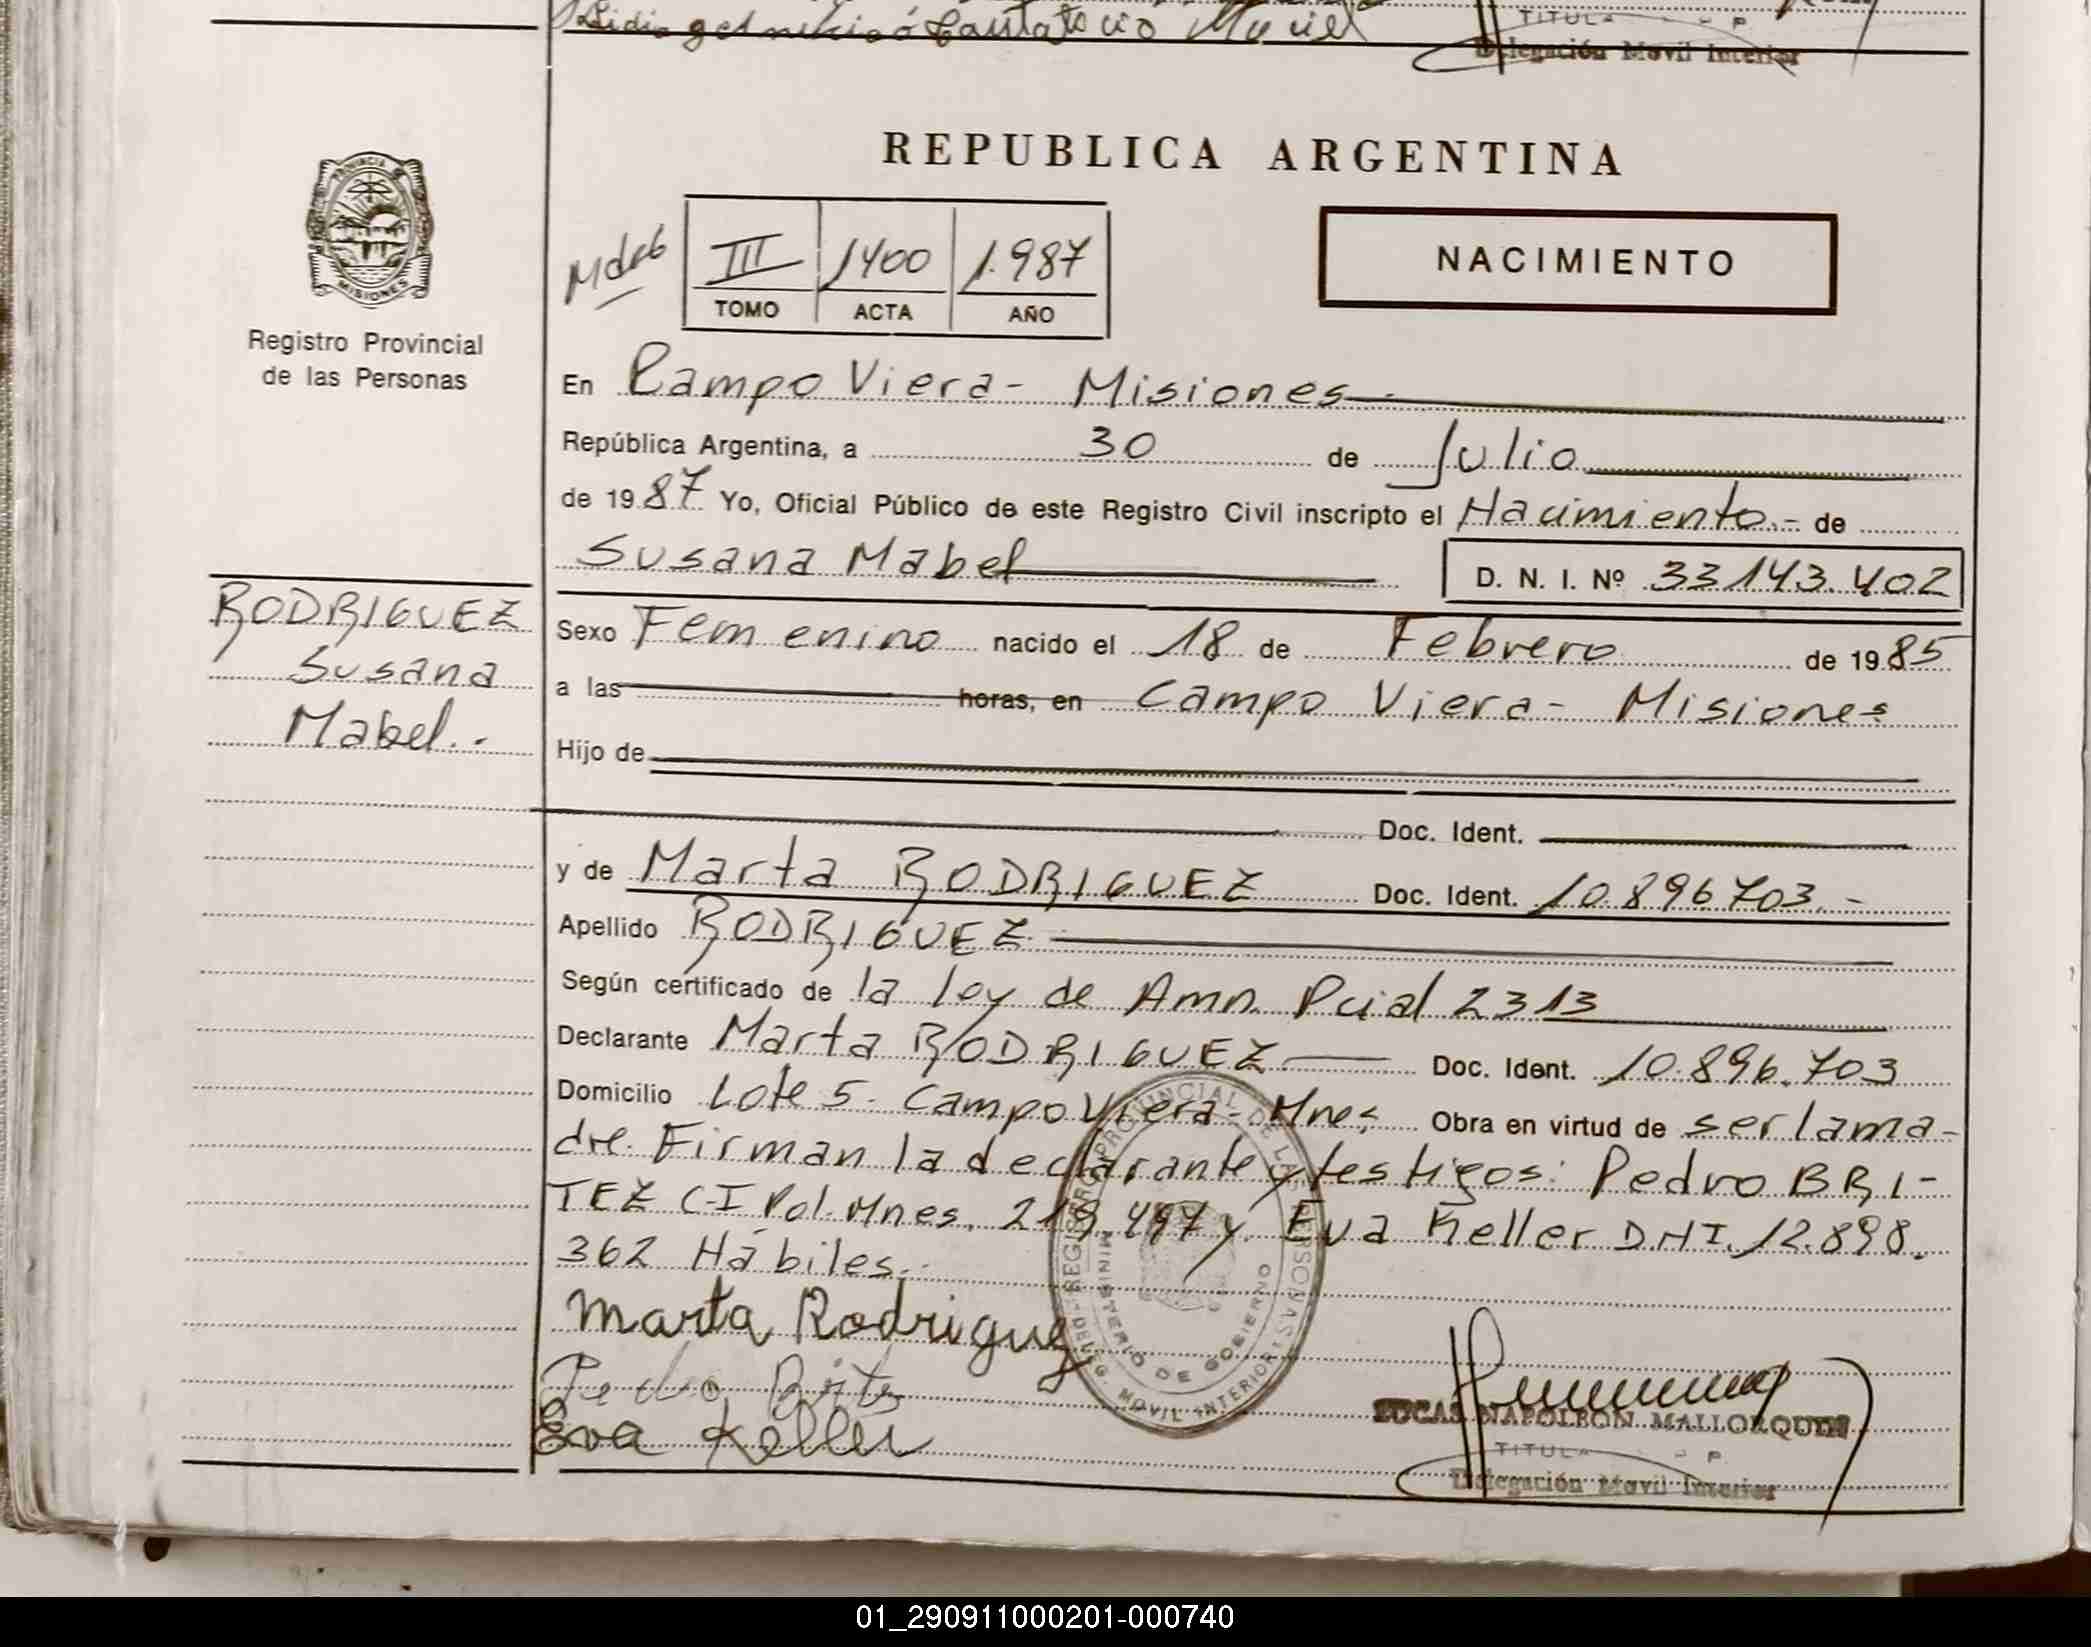 Delegación Movil Interior
REPUBLICA ARGENTINA
PROVINCIA
MISIONES
Registro Provincial
de las Personas
III 1400 1.987
TOMO ACTA AÑO
NACIMIENTO
En Campo Viera - Misiones -
República Argentina, a 30 de Julio
de 1987 Yo, Oficial Público de este Registro Civil inscripto el Nacimiento.- de
Susana Mabel D. N. I. Nº 33.143.402
RODRIGUEZ
Susana
Mabel.-
Sexo Femenino nacido el 18 de Febrero de 1985
a las horas, en Campo Viera - Misiones
Hijo de
Doc. Ident.
y de Marta RODRIGUEZ Doc. Ident. 10.896.703.-
Apellido RODRIGUEZ
Según certificado de la ley de Amn. Pcial 2313
Declarante Marta RODRIGUEZ Doc. Ident. 10.896.703
Domicilio Lote 5. Campo Viera - Mnes Obra en virtud de ser la ma-
dre. Firman la declarante y testigos: Pedro BRI-
TEZ C-I Pol. Mnes. 219.497 y Eva Keller DNI. 12.898.
362 Hábiles.-
Marta Rodriguez
Pedro Britez
Eva Keller
REGISTRO PROVINCIAL DE LAS PERSONAS
MINISTERIO DE GOBIERNO
DELEG. MOVIL INTERIOR
LUCAS NAPOLEON MALLORQUIN
TITULA
Delegación Movil Interior
01_290911000201-000740